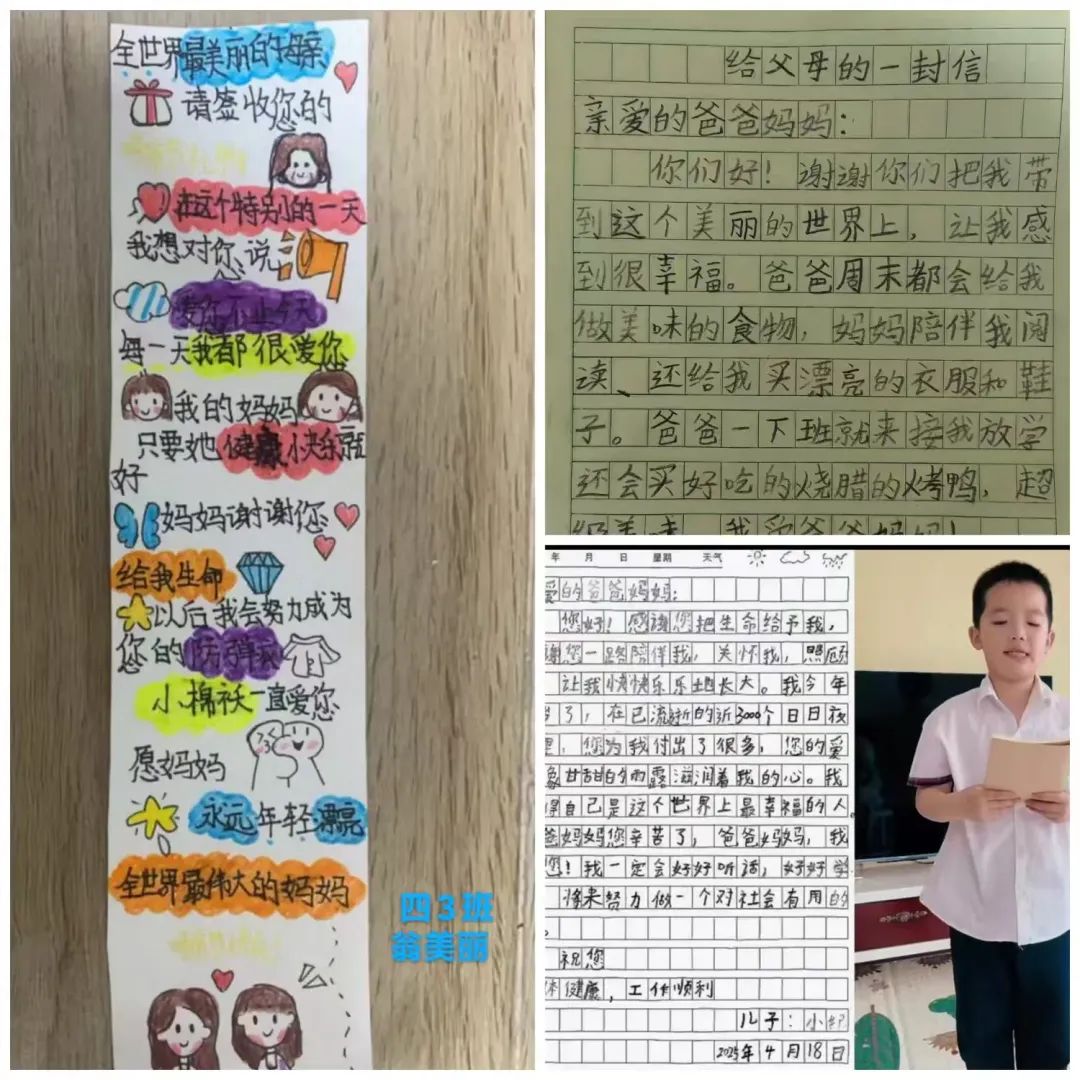 全世界最美丽的母亲
请签收您的
在这个特别的一天
我想对你说
爱您不止今天
每一天我都很爱您
我的妈妈
只要她健康小快乐就
好
妈妈谢谢您
给我生命
以后我会努力成为
您的防弹衣
小棉袄一直爱您
愿妈妈
永远年轻漂亮
全世界最伟大的妈妈
四3班
翁美丽
给父母的一封信
亲爱的爸爸妈妈：
你们好！谢谢你们把我带
到这个美丽的世界上，让我感
到很幸福。爸爸周末都会给我
做美味的食物，妈妈陪伴我阅
读、还给我买漂亮的衣服和鞋
子。爸爸一下班就来接我放学
还会买好吃的烧腊的烤鸭，超
级美味。我爱爸爸妈妈！
年 月 日 星期 天气
爱的爸爸妈妈：
您好！感谢您把生命给予我，
谢您一路陪伴我，关怀我，照顾
让我快快乐乐地长大。我今年
岁了，在已流逝的近3000个日日夜
里，您为我付出了很多，您的爱
象甘甜的雨露滋润着我的心。我
得自己是这个世界上最幸福的人。
爸妈妈您辛苦了，爸爸妈妈，我
您！我一定会好好听话，好好学
将来努力做一个对社会有用的
。
祝您
体健康，工作顺利
儿子：小
2025年4月18日